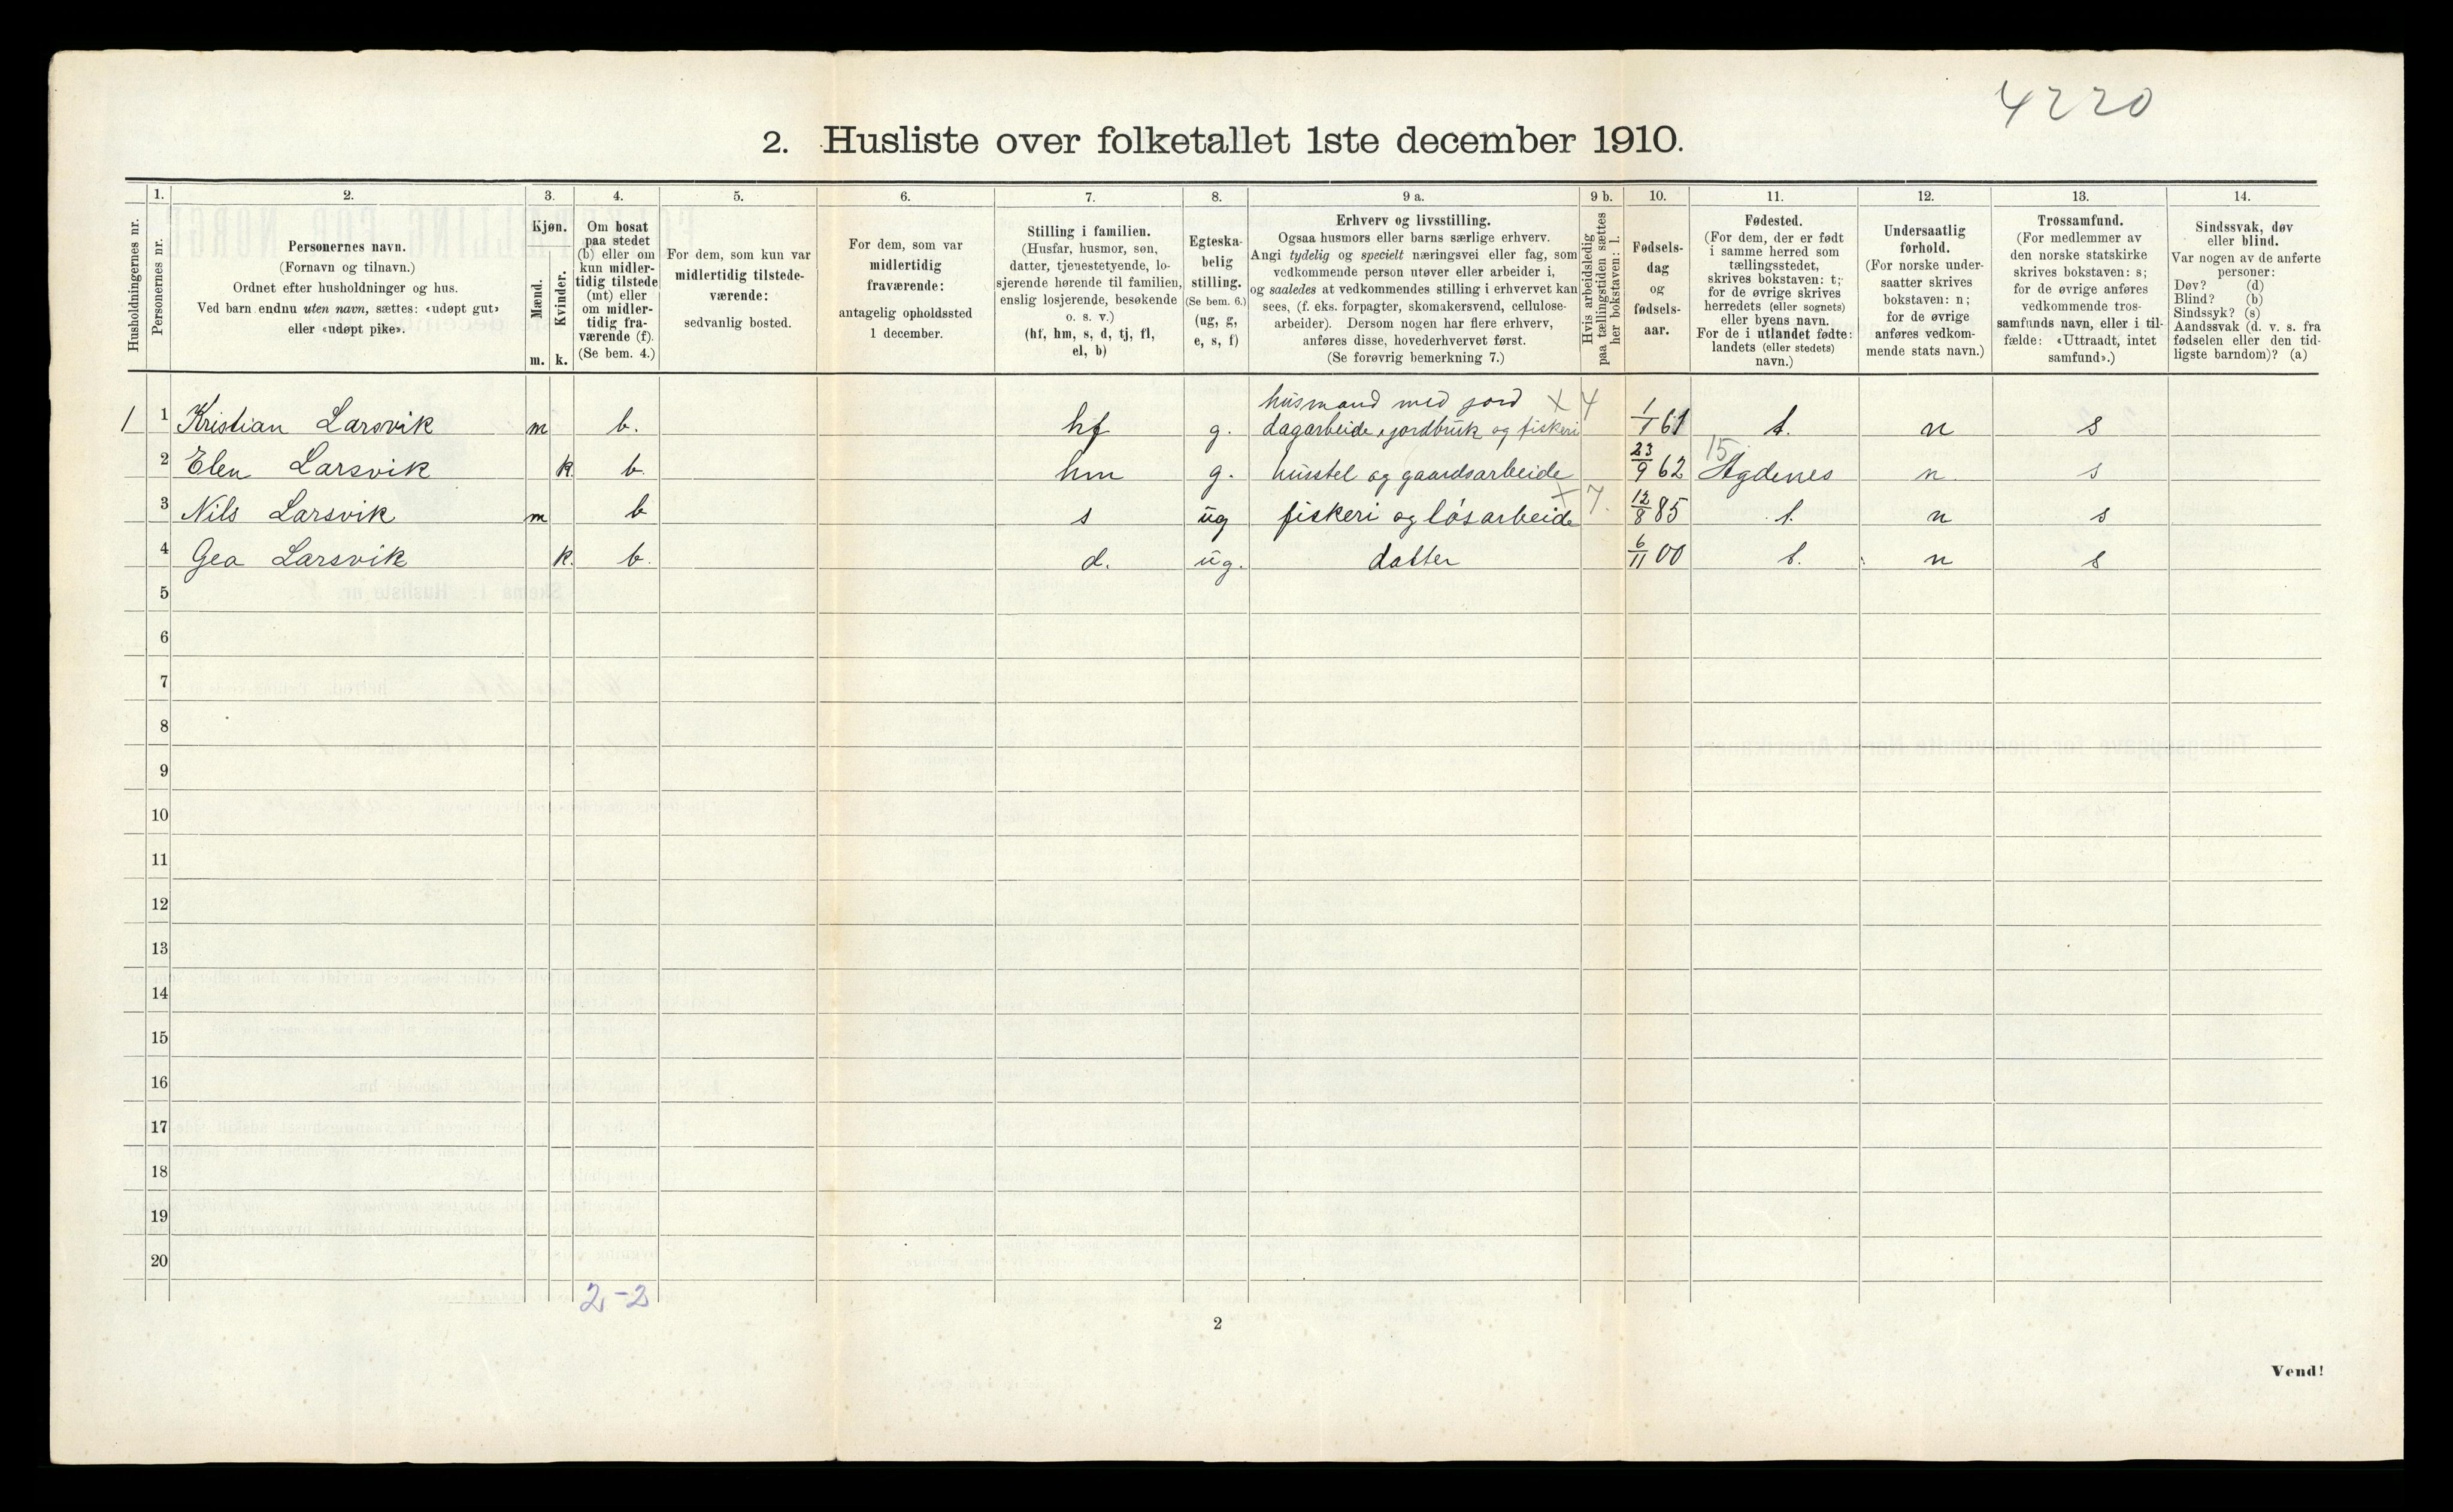 4220
2. Husliste over folketallet 1ste december 1910.
Husholdningernes nr.
1.
Personernes nr.
2.
Personernes navn.
(Fornavn og tilnavn.)
Ordnet efter husholdninger og hus.
Ved barn endnu uten navn, sættes: «udøpt gut»
eller «udøpt pike».
3.
Kjøn.
Mænd.
Kvinder.
m. k.
4.
Om bosat
paa stedet
(b) eller om
kun midler-
tidig tilstede
(mt) eller
om midler-
tidig fra-
værende (f).
(Se bem. 4.)
5.
For dem, som kun var
midlertidig tilstede-
værende:
sedvanlig bosted.
6.
For dem, som var
midlertidig
fraværende:
antagelig opholdssted
1 december.
7.
Stilling i familien.
(Husfar, husmor, søn,
datter, tjenestetyende, lo-
sjerende hørende til familien,
enslig losjerende, besøkende
o. s. v.)
(hf, hm, s, d, tj, fl,
el, b)
8.
Egteska-
belig
stilling.
(Se bem. 6.)
(ug, g,
e, s, f)
9 a.
Erhverv og livsstilling.
Ogsaa husmors eller barns særlige erhverv.
Angi tydelig og specielt næringsvei eller fag, som
vedkommende person utøver eller arbeider i,
og saaledes at vedkommendes stilling i erhvervet kan
sees, (f. eks. forpagter, skomakersvend, cellulose-
arbeider). Dersom nogen har flere erhverv,
anføres disse, hovederhvervet først.
(Se forøvrig bemerkning 7.)
9 b.
Hvis arbeidsledig
paa tællingstiden sættes
her bokstaven: l.
10.
Fødsels-
dag
og
fødsels-
aar.
11.
Fødested.
(For dem, der er født
i samme herred som
tællingsstedet,
skrives bokstaven: t;
for de øvrige skrives
herredets (eller sognets)
eller byens navn.
For de i utlandet fødte:
landets (eller stedets)
navn.)
12.
Undersaatlig
forhold.
(For norske under-
saatter skrives
bokstaven: n;
for de øvrige
anføres vedkom-
mende stats navn.)
13.
Trossamfund.
(For medlemmer av
den norske statskirke
skrives bokstaven: s;
for de øvrige anføres
vedkommende tros-
samfunds navn, eller i til-
fælde: «Uttraadt, intet
samfund».)
14.
Sindssvak, døv
eller blind.
Var nogen av de anførte
personer:
Døv? (d)
Blind? (b)
Sindssyk? (s)
Aandssvak (d. v. s. fra
fødselen eller den tid-
ligste barndom)? (a)
husmand med jord X 4
1 1 Kristian Larsvik m b. hf g. dagarbeide, jordbruk og fiskeri 1/1 61 t. n s
15
2 Elen Larsvik k b. hm g. husstel og gaardsarbeide 23/9 62 Agdenes n. s
3 Nils Larsvik m b s ug fiskeri og løsarbeide X 7. 12/8 85 t. n s
4 Gea Larsvik k. b. d. ug. datter 6/11 00 t. n s
5
6
7
8
9
10
11
12
13
14
15
16
17
18
19
20
2-2
2
Vend!